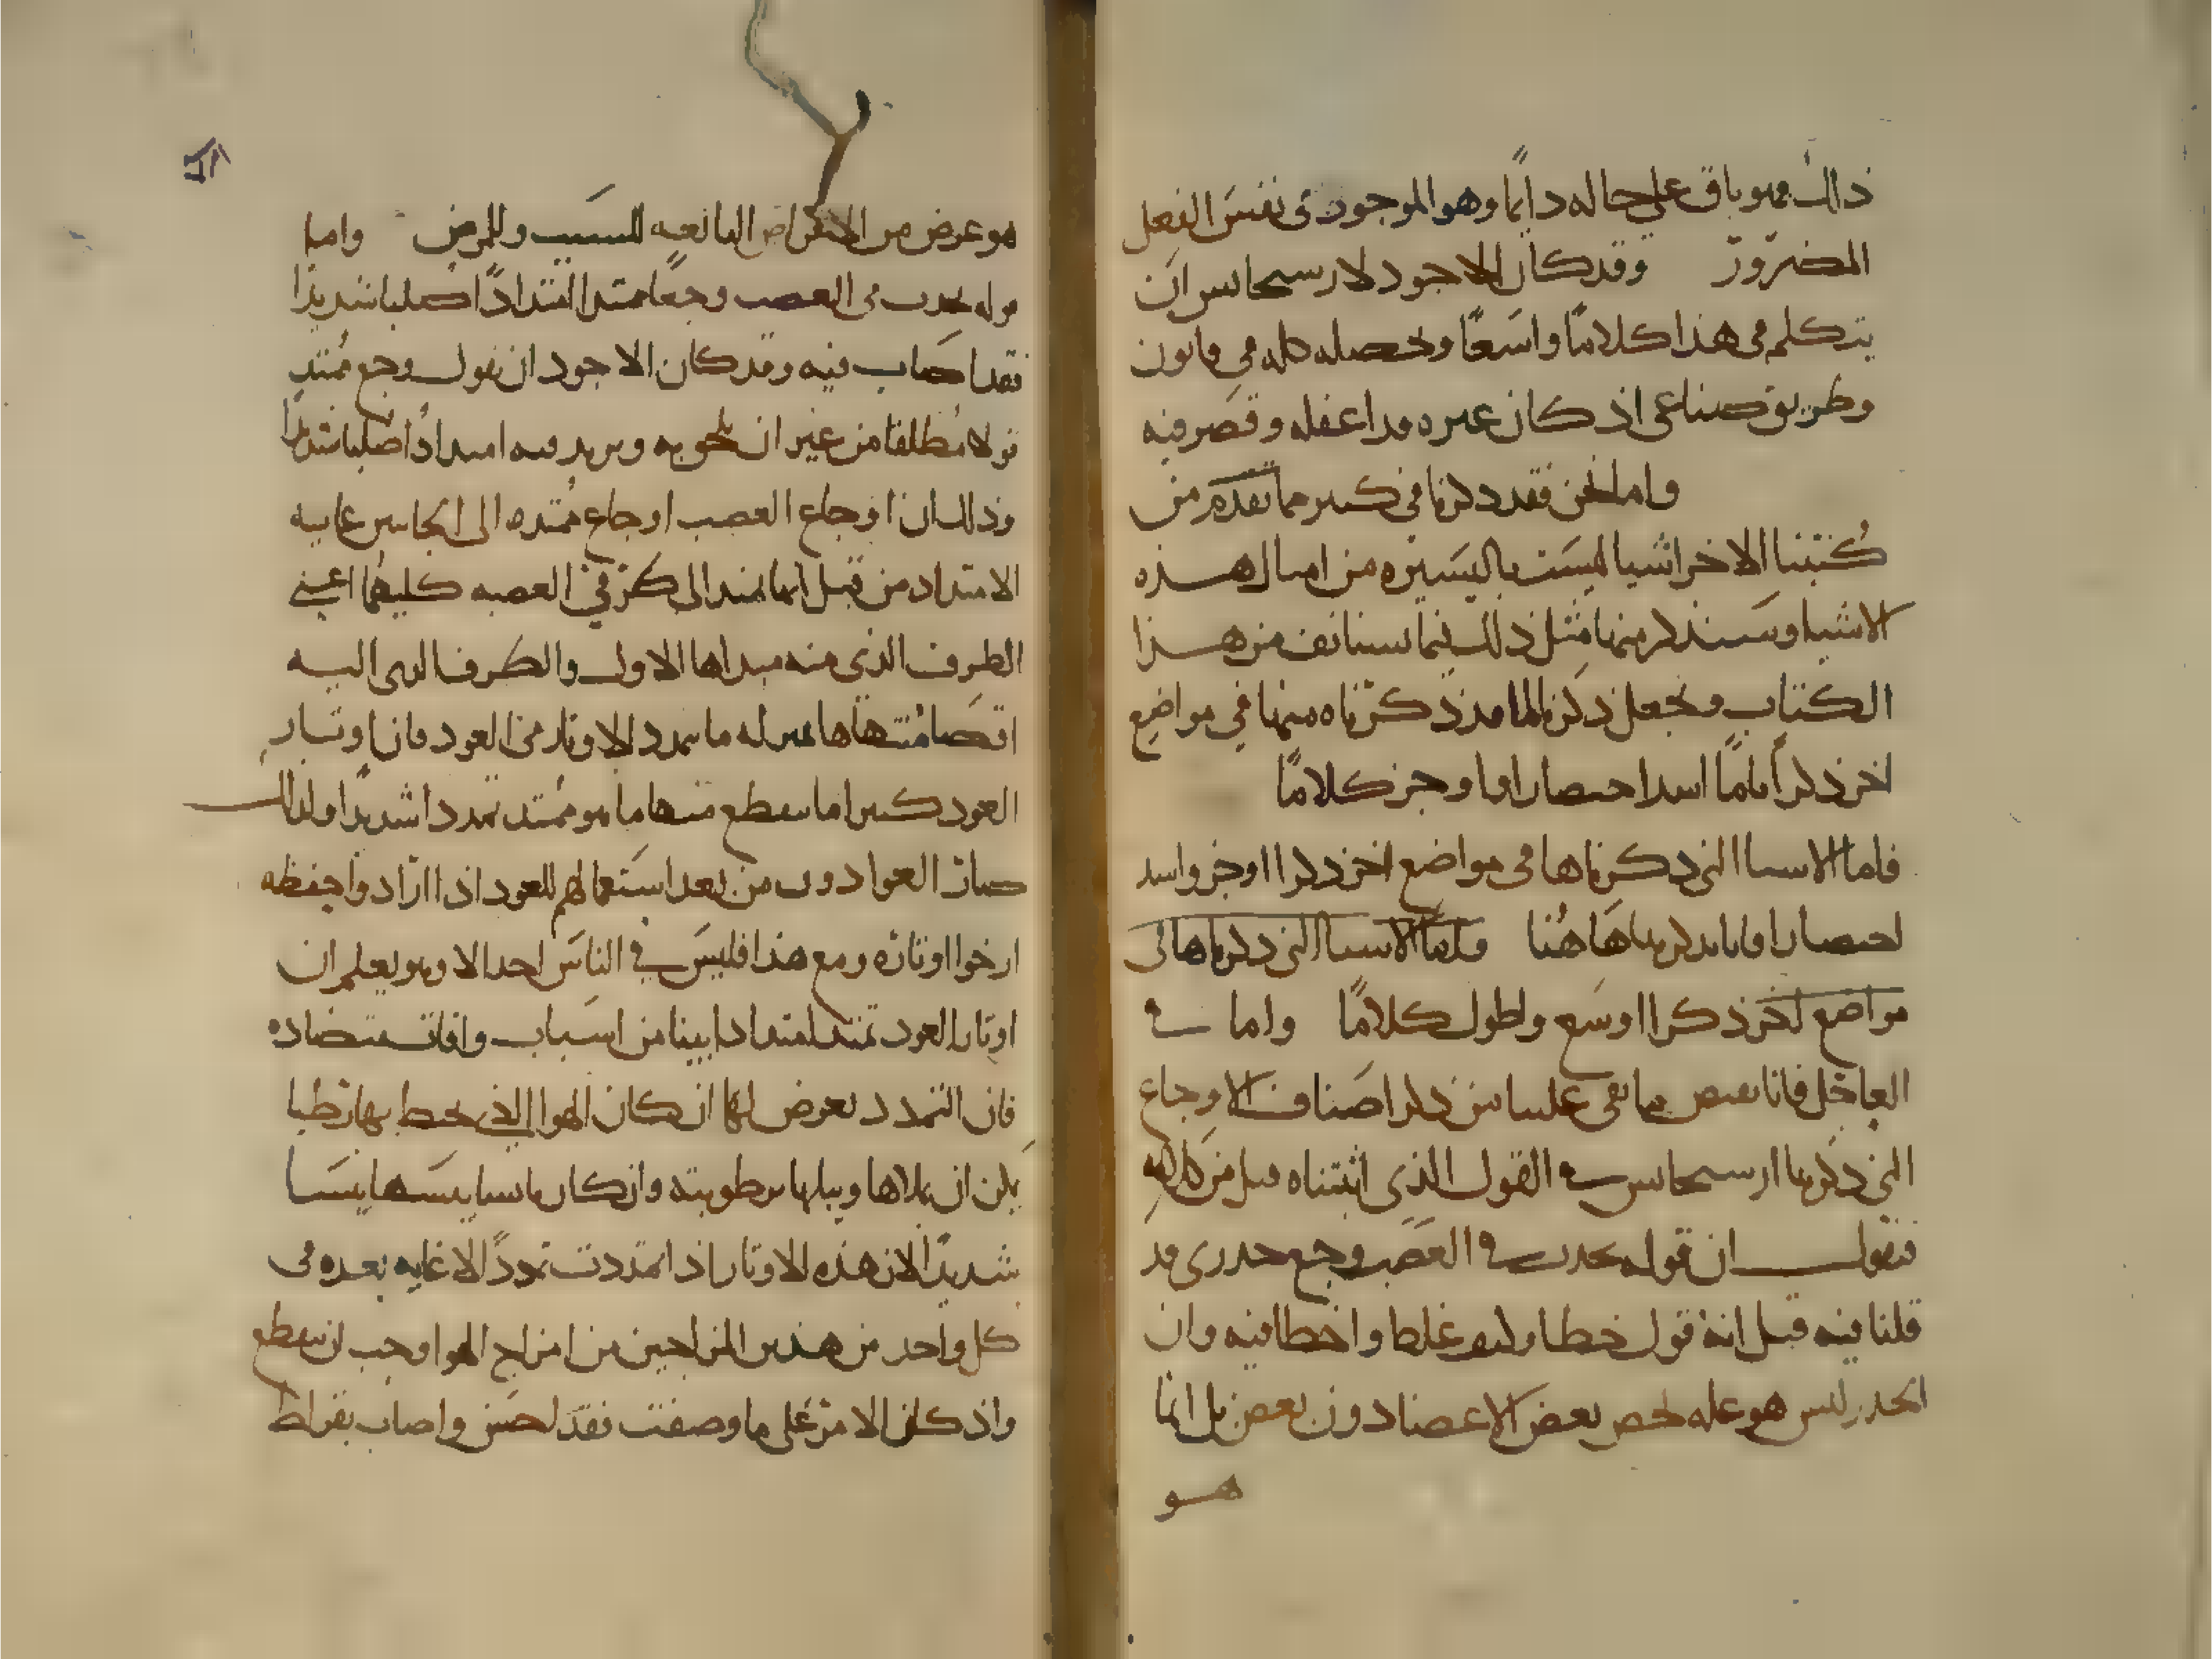 ذلك فهو باق على حاله دايما وهو الموجود في نفس الفعل
المضرور وقد كان الاجود لارسحانس ان
يتكلم في هذا كلاما واسعا وحصله كله في قانون
وطريق صناعي اذ كان غيره قد اغفله وقصر فيه
واما نحن فقد ذكرنا في كثير مما تقدم من
كتبنا الاخر اشيا ليست باليسيره من امثال هذه
الاشيا وسنذكر منها مثل ذلك فيما نستانف من هذا
الكتاب ونجعل ذكرنا لما قد ذكرناه منها في مواضع
اخر ذكرا تاما اشد اختصارا واوجز كلاما
فاما الاشيا التي ذكرناها في مواضع اخر ذكرا اوجز واشد
اختصارا فانا نذكرها هاهنا فاما الاشيا التي ذكرناها في
مواضع اخر ذكرا اوسع واطول كلاما واما في
العاجل فانا نقتص ما بقي علينا من ذكر اصناف الاوجاع
التي ذكرها ارسحانس في القول الذي اثبتناه قبل من كلامه
فنقول ان قوله يحدث في العصب وجع خدري قد
قلنا فيه قبل انه قول خطا وانه غلط واخطا فيه وان
الخدر ليس هو عله تخص بعض الاعضا دون بعض بل انما
هو
هو عرض من الاعراض التابعه للسبب وللمرض واما
قوله يحدث في العصب وجعا ممتدا امتدادا صلبا شديدا
فقد اصاب فيه وقد كان الاجود ان يقول وجع ممتد
قولا مطلقا من غير ان يلحق به ويزيد فيه امتدادا صلبا شديدا
وذلك ان اوجاع العصب اوجاع ممتده الى الجانبين غايه
الامتداد من قبل انها تمتد الى طرفي العصبه كليهما اعني
الطرف الذي منه مبداها الاول والطرف الذي اليه
اقصا منتهاها بمنزله ما تمدد الاوتار في العود فان اوتار
العود كثيرا ما ينقطع منها ما هو ممتد تمددا شديدا ولذلك
صار العوادون من بعد استعمالهم للعود اذا ارادوا حفظه
ارخوا اوتاره ومع هذا فليس في الناس احد الا وهو يعلم ان
اوتار العود تمتد امتدادا بينا من اسباب وافات متضاده
فان التمدد يعرض لها ان كان الهوا الذي يحيط بها رطبا
من ان يملاها ويبلها برطوبته وان كان يابسا ييبسها يبسا
شديدا لان هذه الاوتار اذا تمددت تمددا لا غايه بعده في
كل واحد من هذين المزاجين من امزاج الهوا وجب ان ينقطع
واذ كان الامر على ما وصفت فقد احسن واصاب بقراط